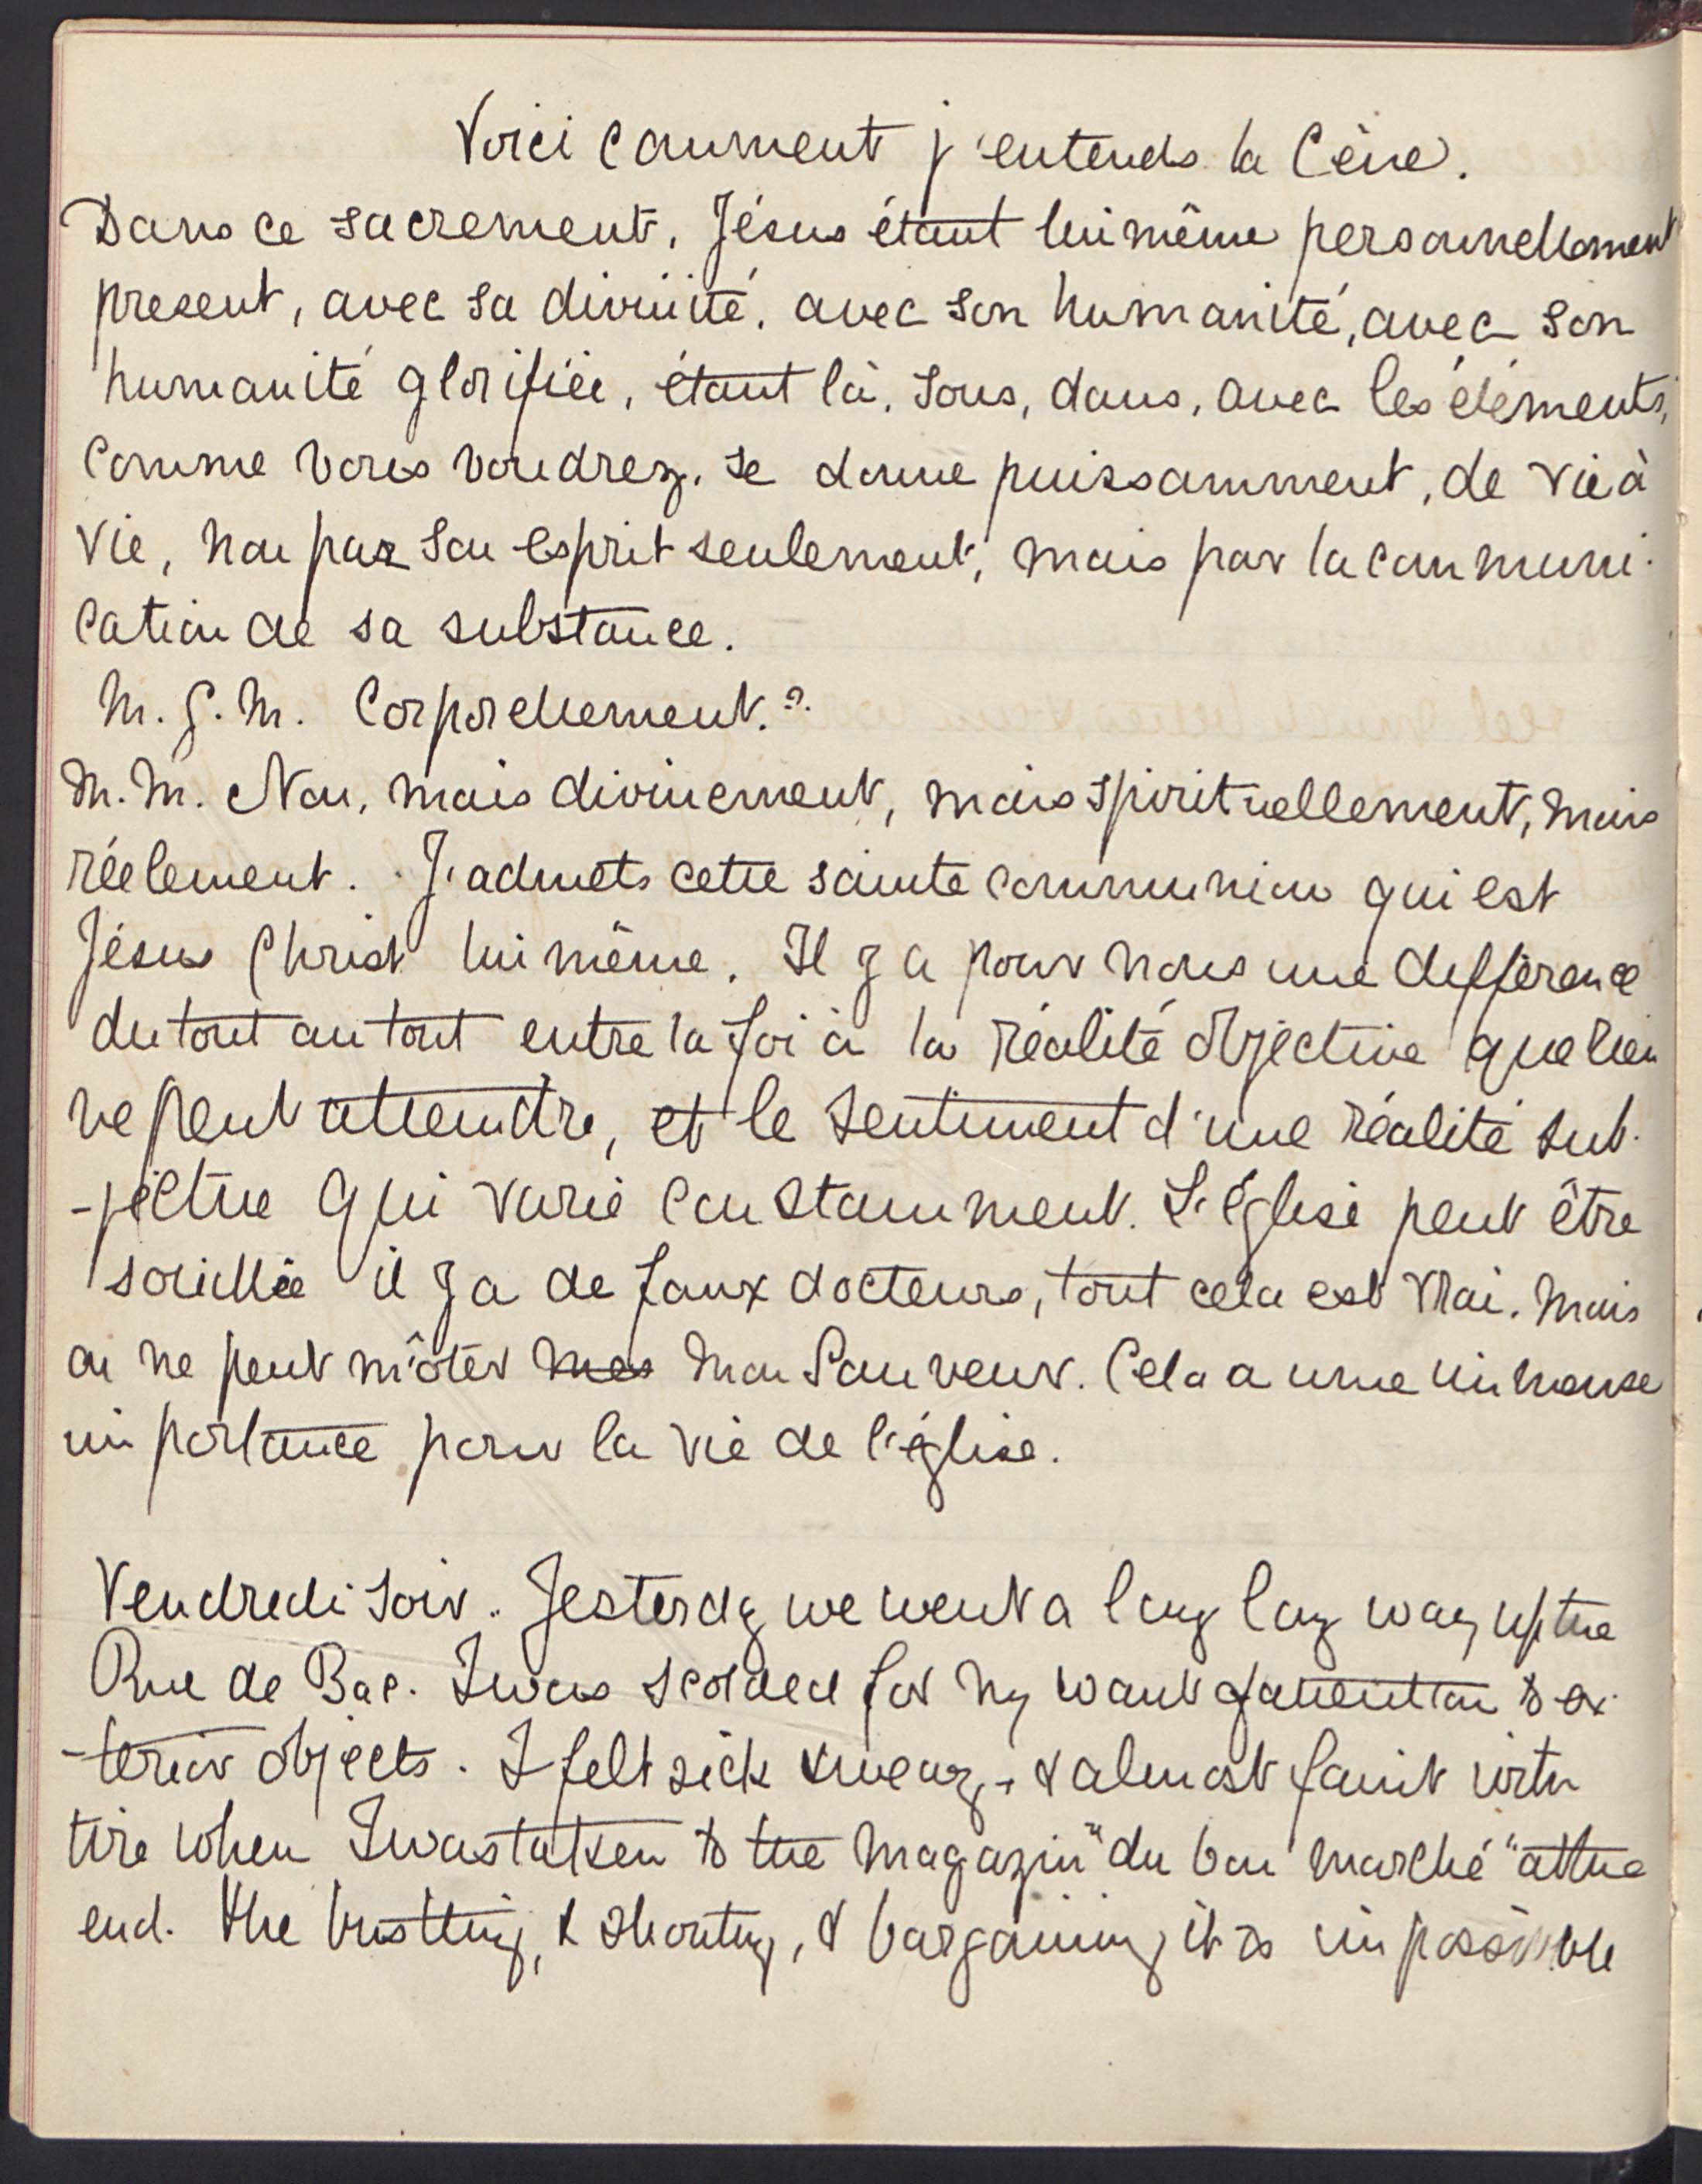 Voici comment j'entends la Cène.
Dans ce sacrement, Jésus étant lui même personnellement
present, avec sa divinité, avec son humanité, avec son
humanité glorifiée, étant là, sous, dans, avec les éléments,
comme vous voudrez, se donne puissamment, de vie à
vie, non par son esprit seulement, mais par la communi-
cation de sa substance.
M. G. M. Corporellement.?
M. M. Non, mais divinement, mais spirituellement, mais
réelement. J'admets cette sainte communion qui est
Jésus Christ lui même. Il y a pour nous une difference
du tout au tout entre la foi à la réalité objective que rien
ne peut atteindre, et le sentiment d'une réalité sub-
-jective qui varie constamment. L'église peut être
souillée il y a de faux docteurs, tout cela est vrai. Mais
on ne peut m'ôter mes mon Sauveur. Cela a une immense
importance pour la vie de l'église.
Vendredi soir. Yesterdy we went a long long way up the
Rue de Bac. I was scolded for my want of attention to ex-
-terior objects. I felt sick & weary, & almost faint with
tire when I was taken to the magazin "du bon marché" at the
end. The bustling, & shouting, & bargaining it is impossible